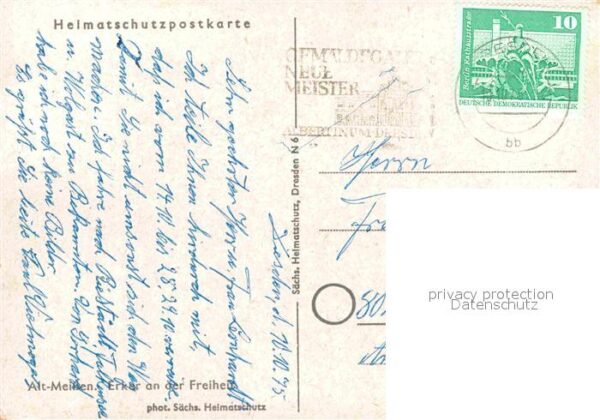 Heimatschutzpostkarte
Dresden, d. 10.10.75
Sehr geehrter Herr u. Frau
Ich teile Ihnen hierdurch mit,
daß ich vom 17.10 bis 28.29.10 verreise.
Damit Sie nicht umsonst sich den Weg
machen. Ich fahre nach
u. Wolgast zu Bekannten. Von
habe ich noch keine Bilder.
Es grüßt Sie beste
Alt-Meißen. Erker an der Freiheit
phot. Sächs. Heimatschutz
Sächs. Heimatschutz, Dresden N 6
GEMÄLDEGALERIE
NEUE
MEISTER
ALBERTINUM DRESDEN
DRESDEN
bb
10
Berlin, Rathausstraße
DEUTSCHE DEMOKRATISCHE REPUBLIK
Herrn
Fr
80
privacy protection
Datenschutz